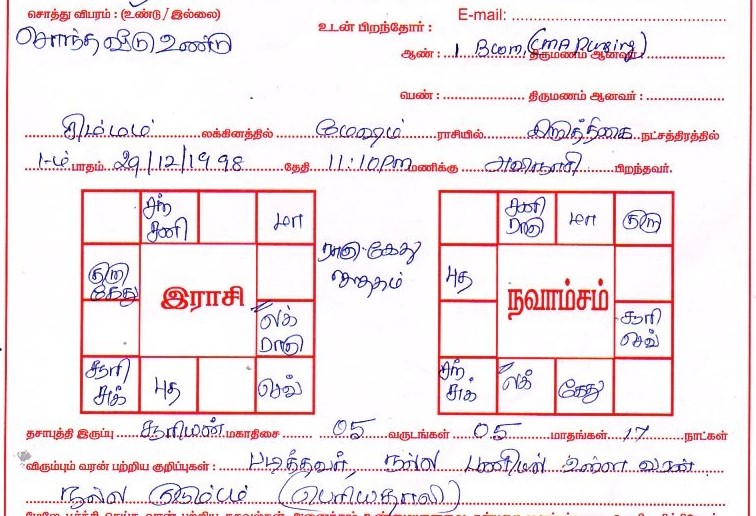 சொத்து விபரம் : (உண்டு / இல்லை)
சொந்த வீடு உண்டு
E-mail:
உடன் பிறந்தோர் :
ஆண் : 1 Bcom, (CMA During) திருமணம் ஆனவர்
பெண் : திருமணம் ஆனவர் :
சிம்மம் லக்கினத்தில் மேஷம் ராசியில் கிருத்திகை நட்சத்திரத்தில்
1-ம் பாதம் 29/12/1998 தேதி 11:10Pm மணிக்கு அவிநாசி பிறந்தவர்.
சந் சனி
மா
குரு கேது
இராசி
லக் ராகு
சூரி சுக்
புத
செவ்
ராகு-கேது ஜாதகம்
சனி ராகு
மா
குரு
புத
நவாம்சம்
சூரி செவ்
சந் சுக்
லக்
கேது
தசாபுத்தி இருப்பு சூரியன் மகாதிசை 05 வருடங்கள் 05 மாதங்கள் 17 நாட்கள்
விரும்பும் வரன் பற்றிய குறிப்புகள் : படித்தவர், நல்ல பணியில் உள்ள வரன்
நல்ல குடும்பம் (பெரியதாலி)